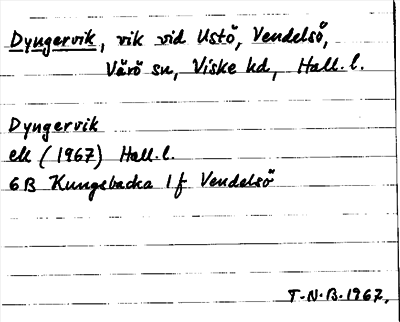 Dyngervik, vik vid Ustö, Vendelsö,
Värö sn, Viske hd, Hall. l.
Dyngervik
ek (1967) Hall. l.
6B Kungsbacka 1f Vendelsö
T.N.B. 1967.